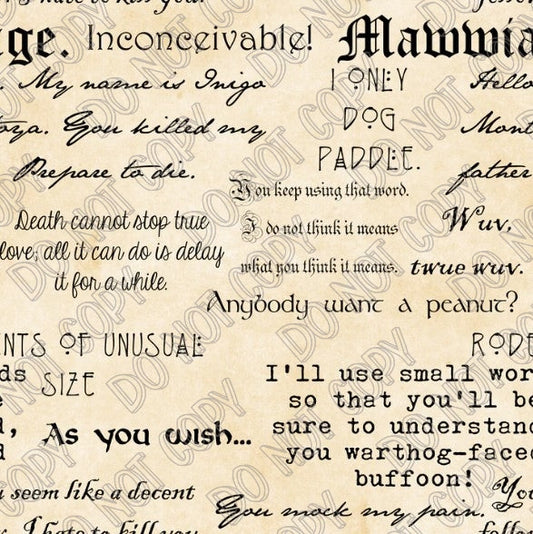 ge. Inconceivable! Mawwia
. My name is Inigo
I ONLY
Hello
DOG
oya. You killed my
Mont
PADDLE.
Prepare to die.
father
You keep using that word.
I do not think it means
what you think it means.
Death cannot stop true
love, all it can do is delay
it for a while.
Wuv,
twue wuv.
Anybody want a peanut?
NTS OF UNUSUAL
SIZE
RODE
ds
e
d
, As you wish...
I'll use small wor
so that you'll be
sure to understand
you warthog-faced
buffoon!
u seem like a decent
. I hate to kill you
You mock my pain.
You
fello
DO NOT COPY